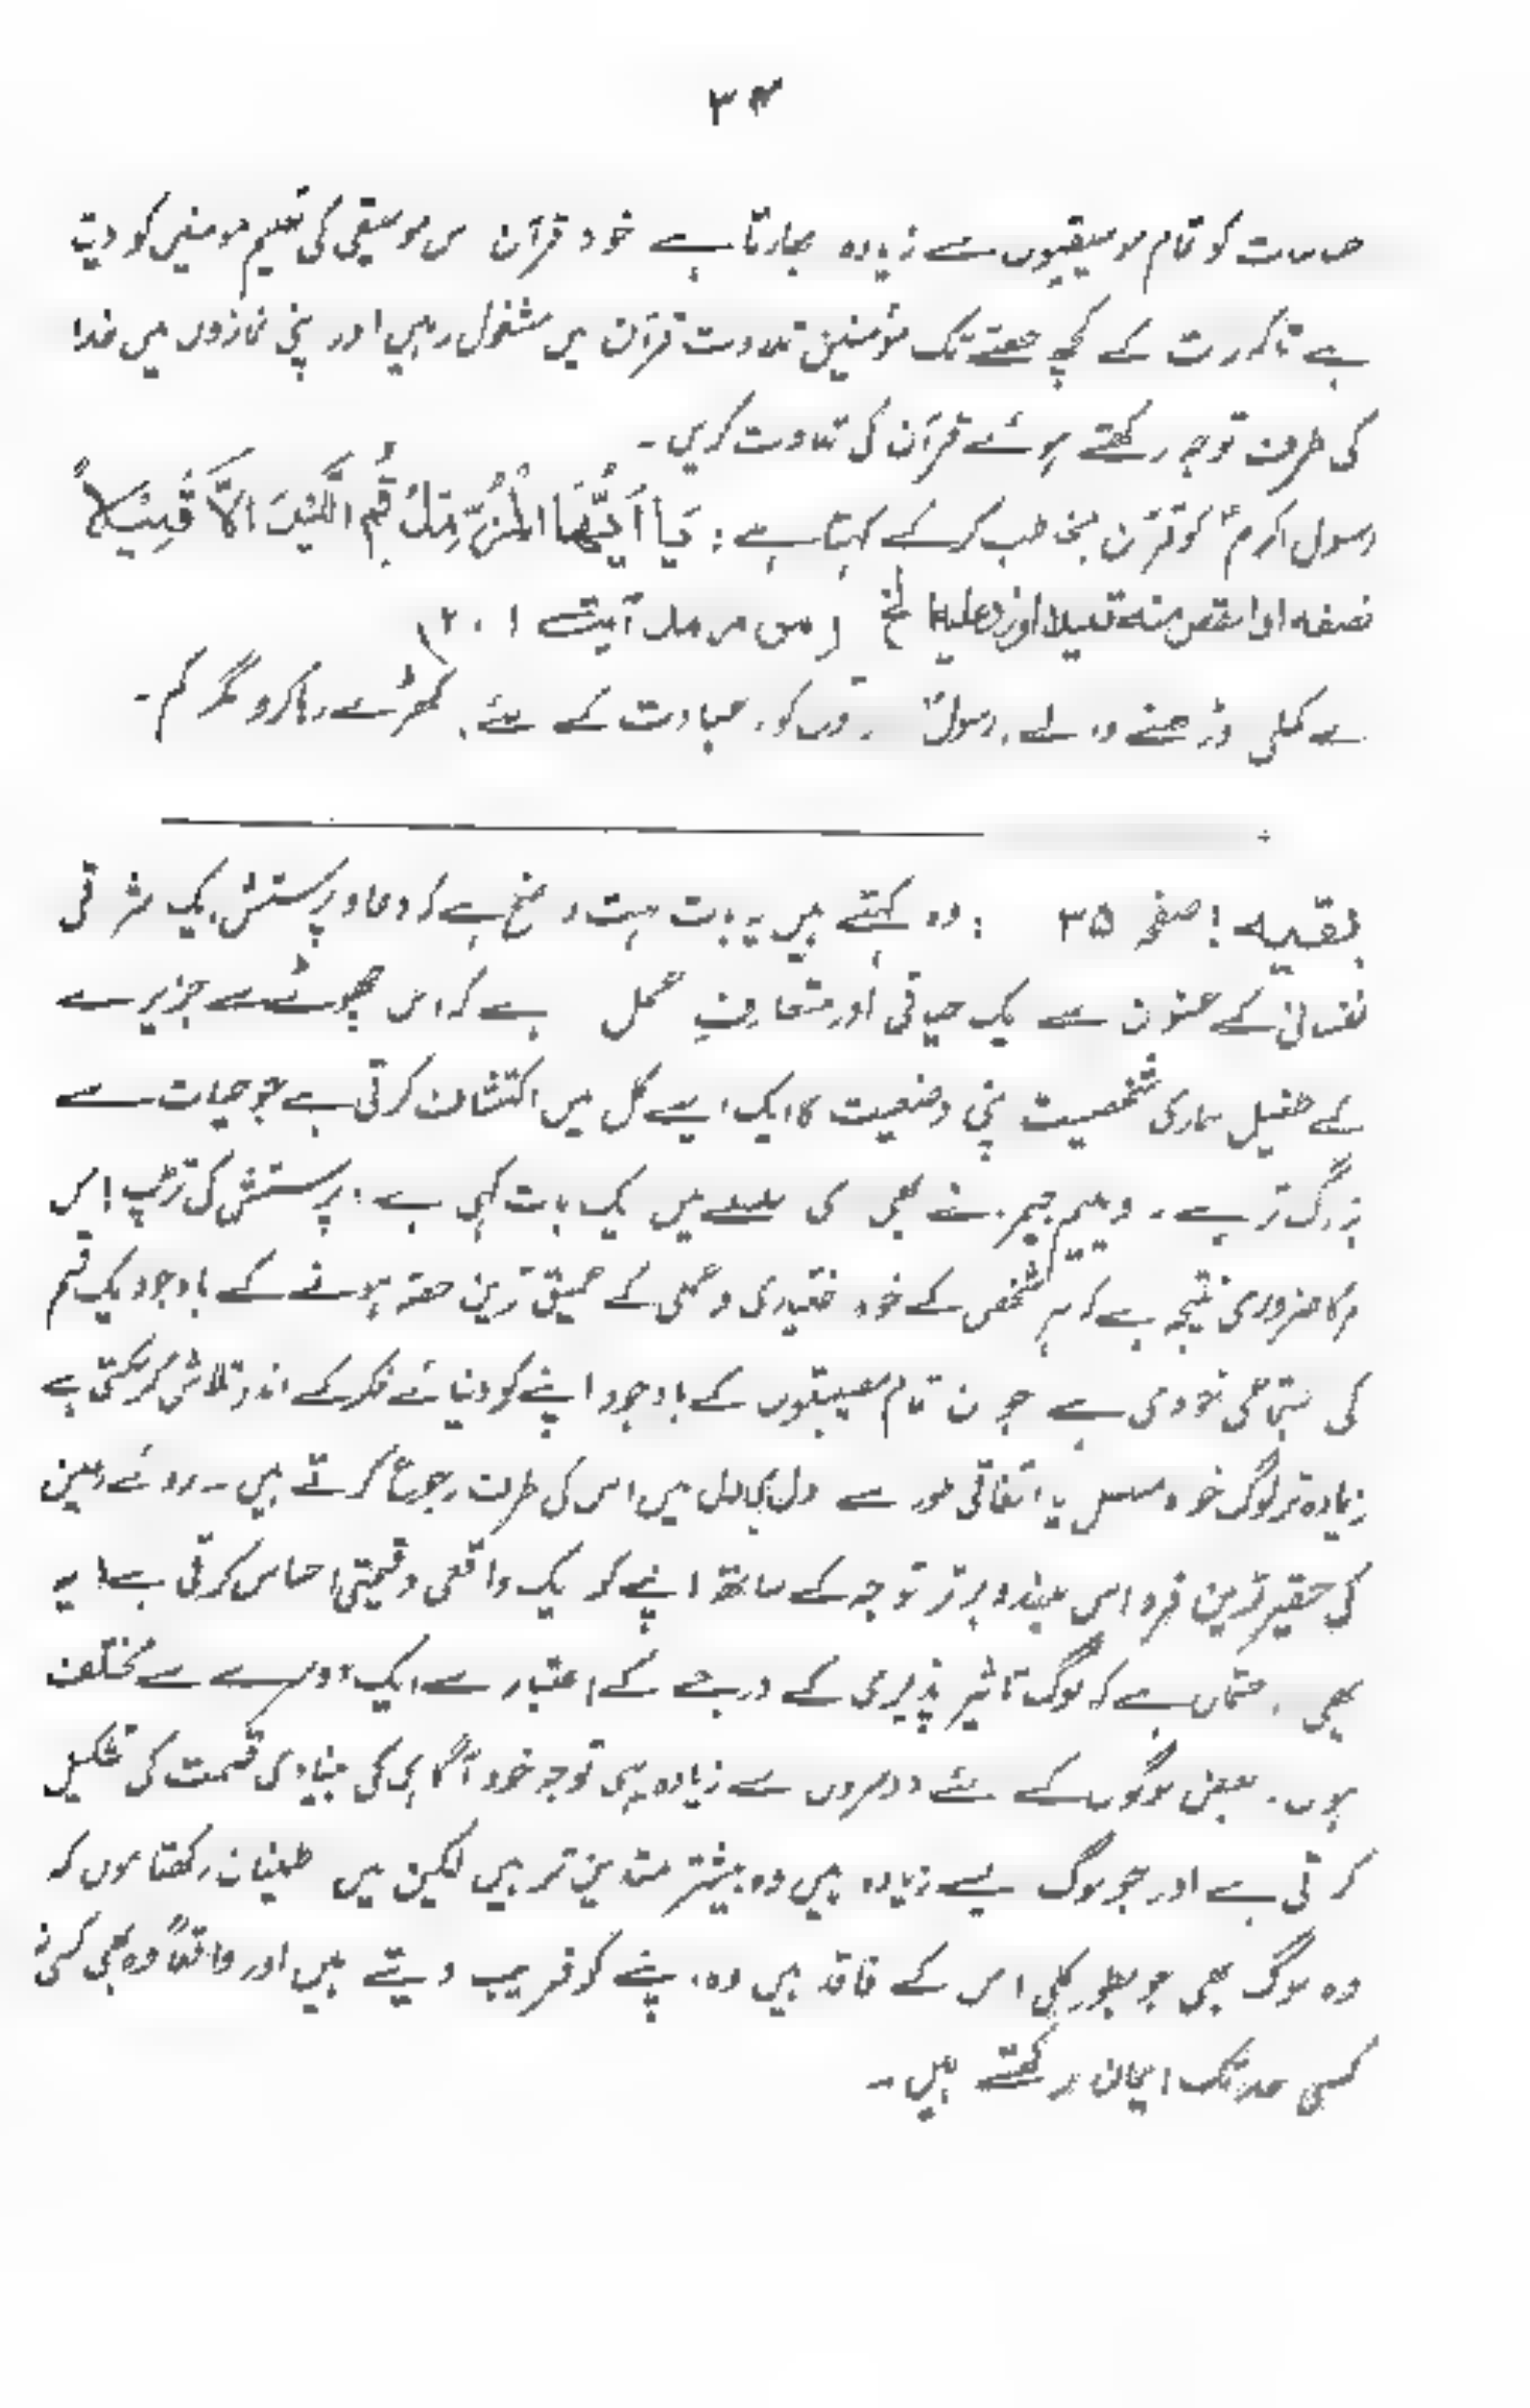 ۳۶
حساسات کو تمام موسیقیوں سے زیادہ بھارتا ہے خود قرآن س موسیقی کی تعلیم مومنین کو دیتا
ہے تاکہ رت کے کچھ حصے تک مؤمنین تلاوت قرآن میں مشغول رہیں اور پنی نمازوں میں خدا
کی طرف توجہ رکھتے ہوئے قرآن کی تلاوت کریں۔
رسول اکرمؐ کو قرآن مخاطب کرکے کہتا ہے : یَا اَیُّھَا الْمُزَّمِّلُ قُمِ الَّیْلَ اِلَّا قَلِیْلاً
نصفہ او انقص منہ قلیلا او زد علیہ الخ (س مزمل آیت ۱ ، ۲)
ے کملی وڑھنے و لے رسولؐ ر توں کو عبادت کے لئے کھڑے رہا کرو مگر کم۔
بقیہ : صفحہ ۳۵ : وہ کہتے ہیں یہ بات بہت و ضح ہے کہ دعا و پرستش یک شرقی
نفسانی کے عنوان سے یک حیاتی اور متعارف عمل ہے کہ اس چھوٹے سے جزیرے
کے طفیل ہماری شخصیت پنی وضعیت کا ایک ایسے کل میں اکتشاف کرتی ہے جو حیات سے
بزرگ تر ہے۔ ولیم جیمز نے بھی سی سلسلے میں یک بات کہی ہے : پرستش کی تڑپ اس
امر کا ضروری نتیجہ ہے کہ ہر شخص کے خود ختیاری و عملی کے عمیق ترین حصہ ہونے کے باوجود یک قسم
کی جتماعی خودی ہے جو ن تمام مصیبتوں کے باوجود اپنے کو دنیائے فکر کے اندر تلاش کر سکتی ہے
زیادہ تر لوگ خود مسلسل یا اتفاقی طور سے دل ہی دل میں اس کی طرف رجوع کرتے ہیں۔ روئے زمین
کی حقیر ترین فرد اس بلند و برتر توجہ کے ساتھ اپنے کو یک واقعی و قیمتی احساس کرتی ہے! یہ
بھی حتمال ہے کہ لوگ تاثیر پذیری کے درجے کے اعتبار سے ایک دوسرے سے مختلف
ہوں۔ بعض لوگوں کے لئے دوسروں سے زیادہ یہی توجہ خود آگاہی کی بنیادی قسمت کی تشکیل
کرتی ہے اور جو لوگ یسے زیادہ ہیں وہ بیشتر متدین تر ہیں لیکن میں طمینان رکھتا ہوں کہ
وہ لوگ بھی جو بطور کلی اس کے فاقد ہیں وہ اپنے کو فریب دیتے ہیں اور واقعاً وہ بھی کسی نہ
کسی حد تک ایمان رکھتے ہیں۔